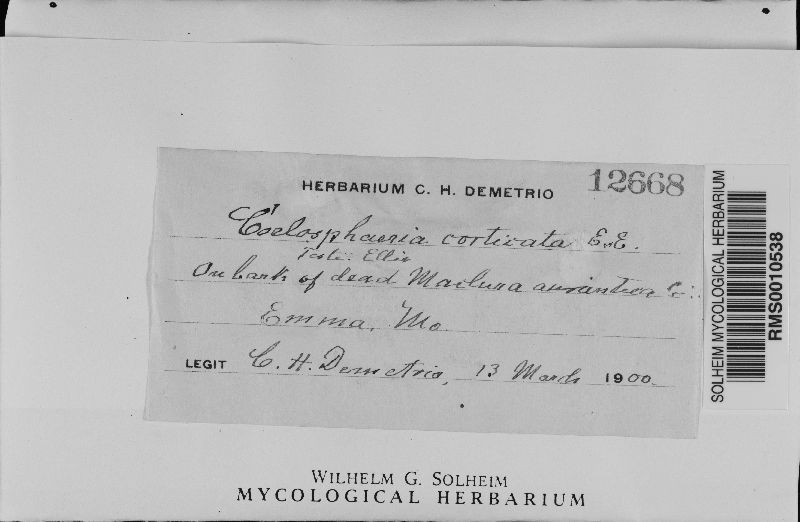 HERBARIUM C. H. DEMETRIO
12668
Coelosphaeria corticata E. & E.
Teste: Ellis
On bark of dead Maclura aurantiaca
Emma, Mo.
LEGIT C. H. Demetrio, 13 March 1900
SOLHEIM MYCOLOGICAL HERBARIUM
RMS0010538
WILHELM G. SOLHEIM
MYCOLOGICAL HERBARIUM